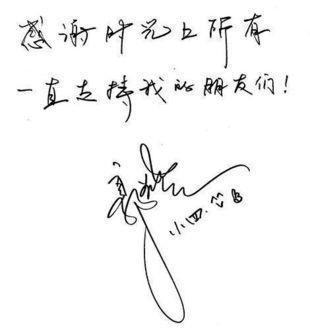 感谢时光上所有
一直支持我的朋友们！
小四.